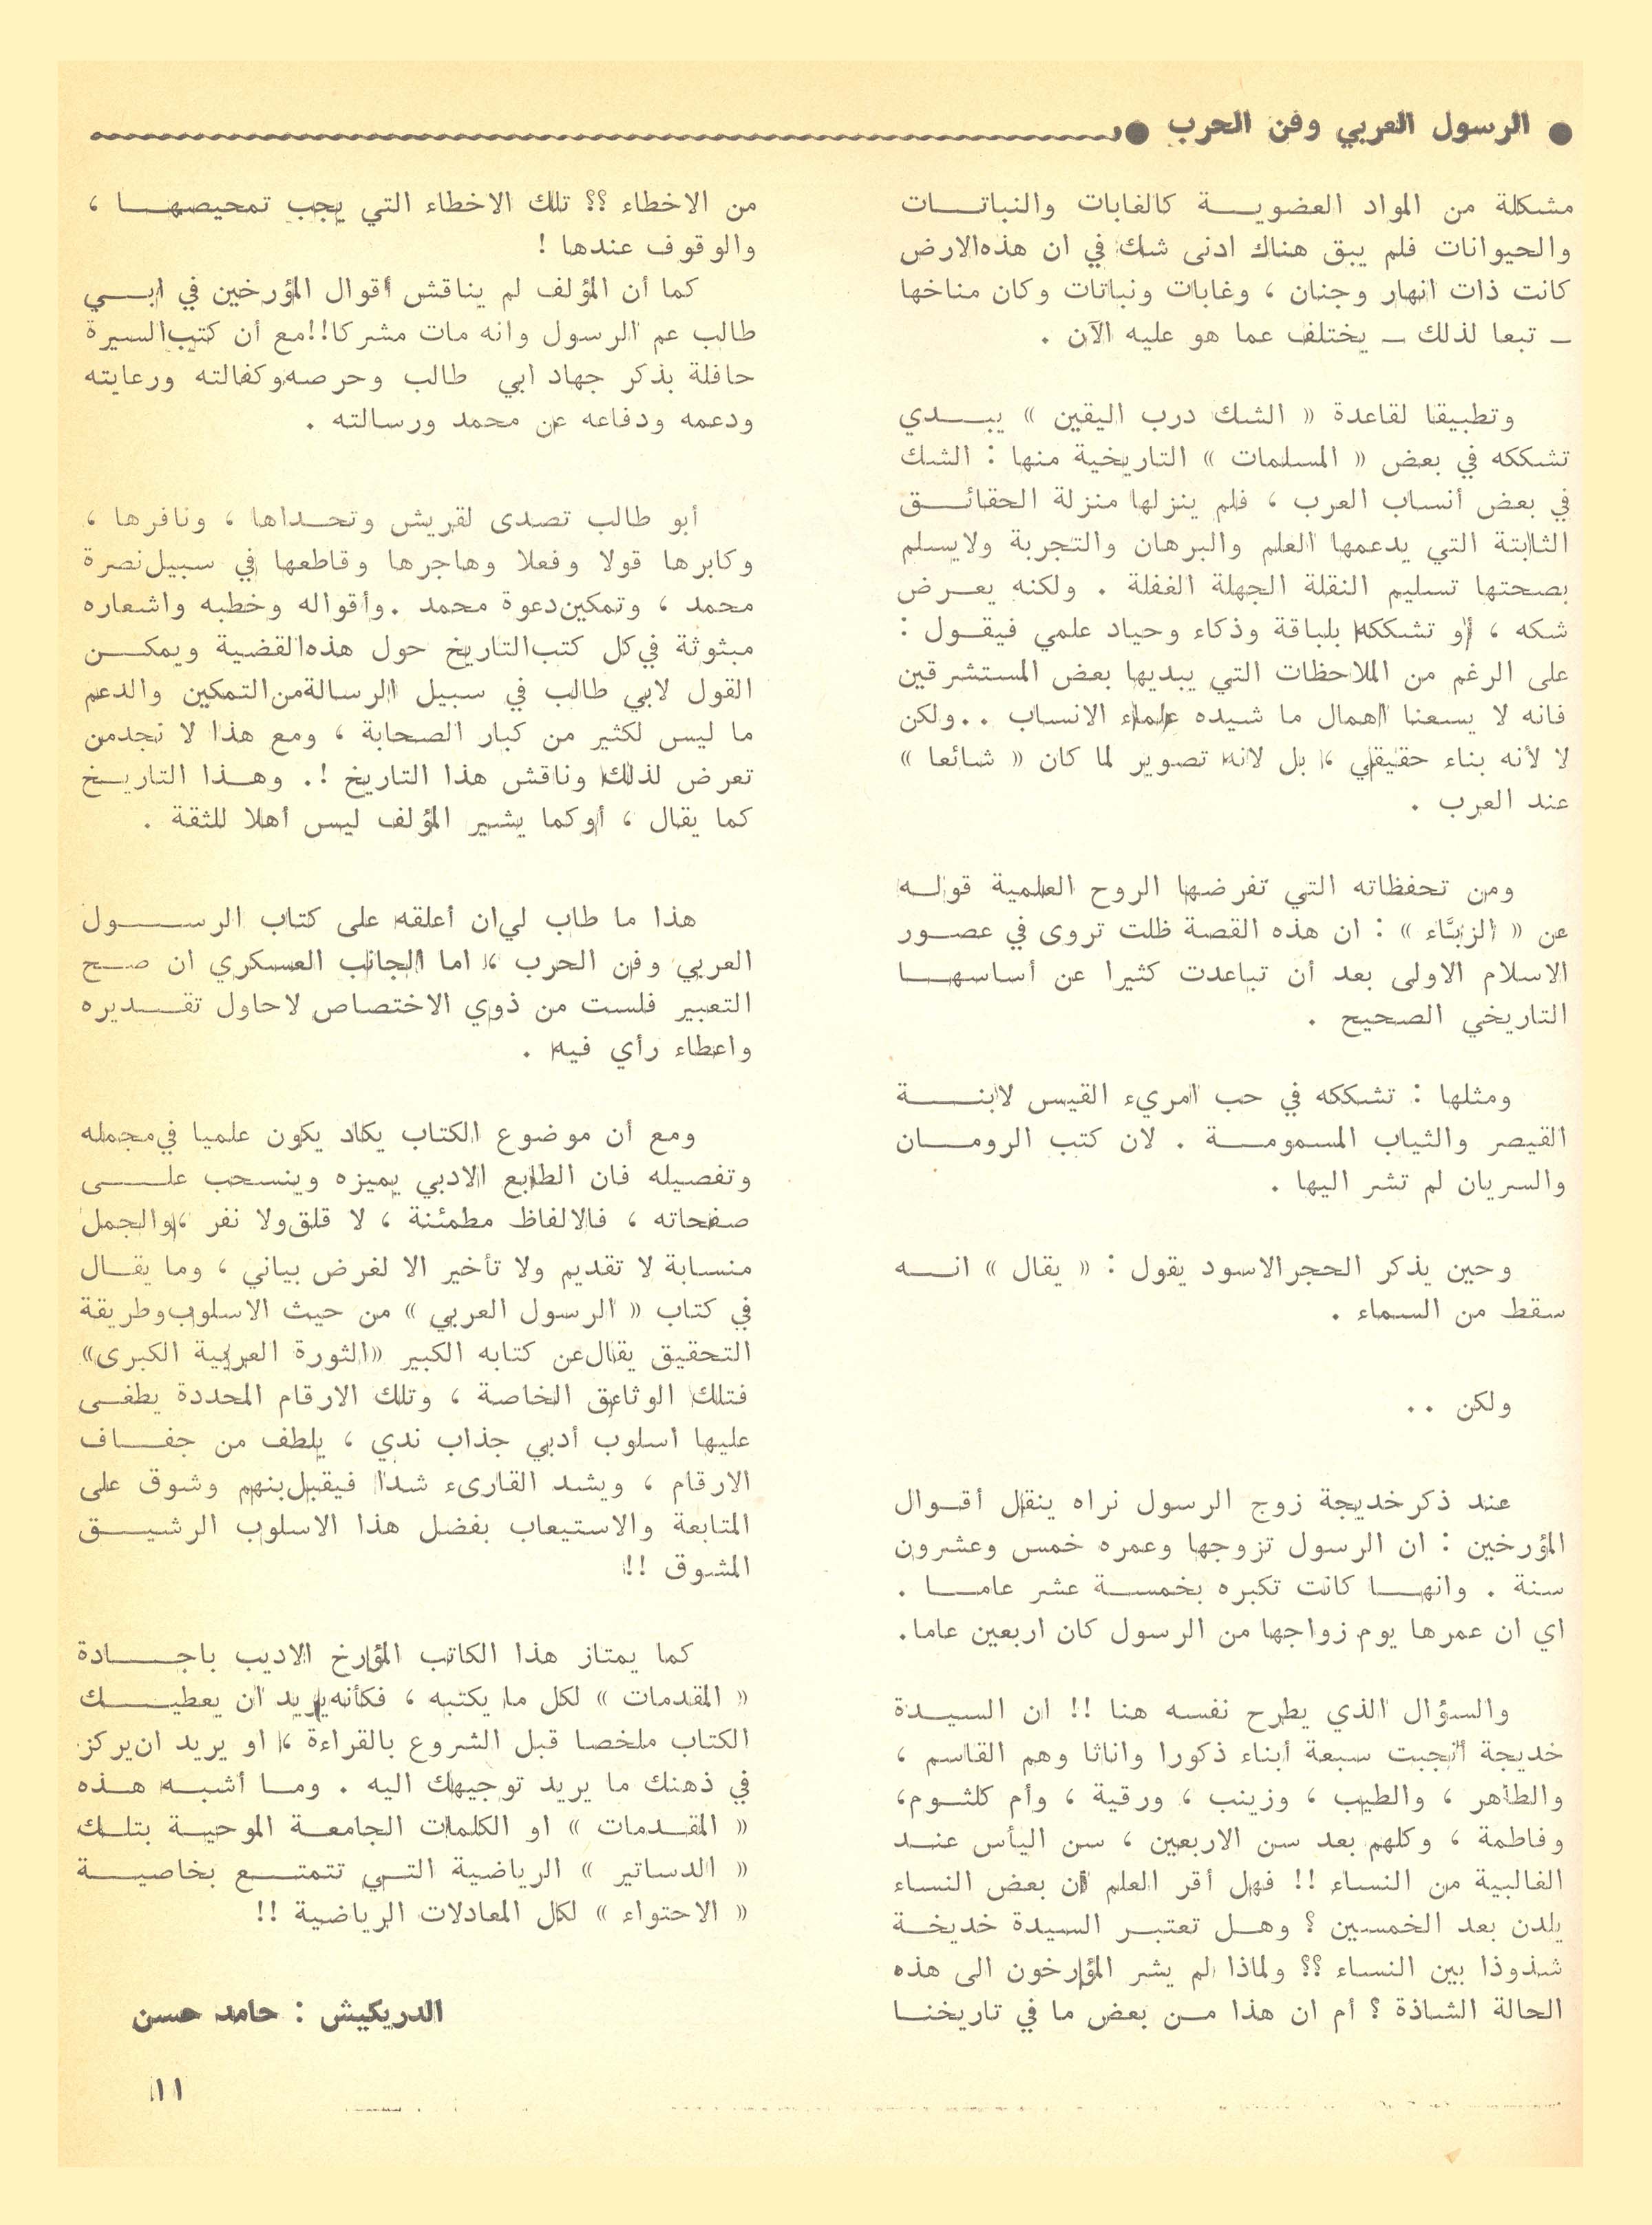 ● الرسول العربي وفن الحرب ●
مشكلة من المواد العضويـة كالغابات والنباتـات
والحيوانات فلم يبق هناك ادنى شك في ان هذه الارض
كانت ذات انهار وجنان ، وغابات ونباتات وكان مناخها
ـ تبعا لذلك ـ يختلف عما هو عليه الآن .
وتطبيقا لقاعدة « الشك درب اليقين » يبـدي
تشككه في بعض « المسلمات » التاريخية منها : الشك
في بعض أنساب العرب ، فلم ينزلها منزلة الحقائـق
الثابتة التي يدعمها العلم والبرهان والتجربة ولايسلم
بصحتها تسليم النقلة الجهلة الغفلة . ولكنه يعـرض
شكه ، أو تشككه بلباقة وذكاء وحياد علمي فيقـول :
على الرغم من الملاحظات التي يبديها بعض المستشرقين
فانه لا يسعنا اهمال ما شيده علماء الانساب ..ولكن
لا لأنه بناء حقيقي ، بل لانه تصوير لما كان « شائعا »
عند العرب .
ومن تحفظاته التي تفرضها الروح العلمية قولـه
عن « الزبّاء » : ان هذه القصة ظلت تروى في عصـور
الاسلام الاولى بعد أن تباعدت كثيرا عن أساسهـا
التاريخي الصحيح .
ومثلها : تشككه في حب امريء القيس لابنـة
القيصر والثياب المسمومـة . لان كتب الرومـان
والسريان لم تشر اليها .
وحين يذكر الحجر الاسود يقول : « يقال » انـه
سقط من السماء .
ولكن ..
عند ذكر خديجة زوج الرسول نراه ينقل أقـوال
المؤرخين : ان الرسول تزوجها وعمره خمس وعشرون
سنة . وانهـا كانت تكبره بخمسـة عشر عامـا .
اي ان عمرها يوم زواجها من الرسول كان اربعين عاما.
والسؤال الذي يطرح نفسه هنا !! ان السيـدة
خديجة أنجبت سبعة أبناء ذكورا واناثا وهم القاسم ،
والطاهر ، والطيب ، وزينب ، ورقية ، وأم كلثـوم،
وفاطمة ، وكلهم بعد سن الاربعين ، سن اليأس عنـد
الغالبية من النساء !! فهل أقر العلم أن بعض النساء
يلدن بعد الخمسين ؟ وهـل تعتبـر السيدة خديخـة
شذوذا بين النساء ؟؟ ولماذا لم يشر المؤرخون الى هذه
الحالة الشاذة ؟ أم ان هذا مـن بعض ما في تاريخنـا
من الاخطاء ؟؟ تلك الاخطاء التي يجب تمحيصهـا ،
والوقوف عندها !
كما أن المؤلف لم يناقش أقوال المؤرخين في ابـي
طالب عم الرسول وانه مات مشركا!!مع أن كتب السيرة
حافلة بذكر جهاد ابي طالب وحرصه وكفالته ورعايته
ودعمه ودفاعه عن محمد ورسالته .
أبو طالب تصدى لقريش وتحـداها ، ونافرها ،
وكابرها قولا وفعلا وهاجرها وقاطعها في سبيل نصرة
محمد ، وتمكين دعوة محمد .وأقواله وخطبه واشعاره
مبثوثة في كل كتب التاريخ حول هذه القضية ويمكـن
القول لابي طالب في سبيل الرسالة من التمكين والدعم
ما ليس لكثير من كبار الصحابة ، ومع هذا لا نجد من
تعرض لذلك وناقش هذا التاريخ !. وهـذا التاريـخ
كما يقال ، أو كما يشير المؤلف ليس أهلا للثقة .
هذا ما طاب لي ان أعلقه على كتاب الرسـول
العربي وفن الحرب ، اما الجانب العسكري ان صـح
التعبير فلست من ذوي الاختصاص لاحاول تقـديره
واعطاء رأي فيه .
ومع أن موضوع الكتاب يكاد يكون علميا في مجمله
وتفصيله فان الطابع الادبي يميزه وينسحب علـى
صفحاته ، فالالفاظ مطمئنة ، لا قلق ولا نفر ،والجمل
منسابة لا تقديم ولا تأخير الا لغرض بياني ، وما يقـال
في كتاب « الرسول العربي » من حيث الاسلوب وطريقة
التحقيق يقال عن كتابه الكبير «الثورة العربية الكبرى»
فتلك الوثائق الخاصة ، وتلك الارقام المحددة يطغـى
عليها اسلوب أدبي جذاب ندي ، يلطف من جفـاف
الارقام ، ويشد القارىء شدا فيقبل بنهم وشوق على
المتابعة والاستيعاب بفضل هذا الاسلوب الرشيـق
المشوق !!
كما يمتاز هذا الكاتب المؤرخ الاديب باجـادة
« المقدمات » لكل ما يكتبه ، فكأنه يريد ان يعطيـك
الكتاب ملخصا قبل الشروع بالقراءة ، او يريد ان يركز
في ذهنك ما يريد توجيهك اليه . ومـا أشبـه هـذه
« المقـدمات » او الكلمات الجامعـة الموحيـة بتلـك
« الدساتير » الرياضية التـي تتمتـع بخاصيـة
« الاحتواء » لكل المعادلات الرياضية !!
الدريكيش : حامد حسن
١١